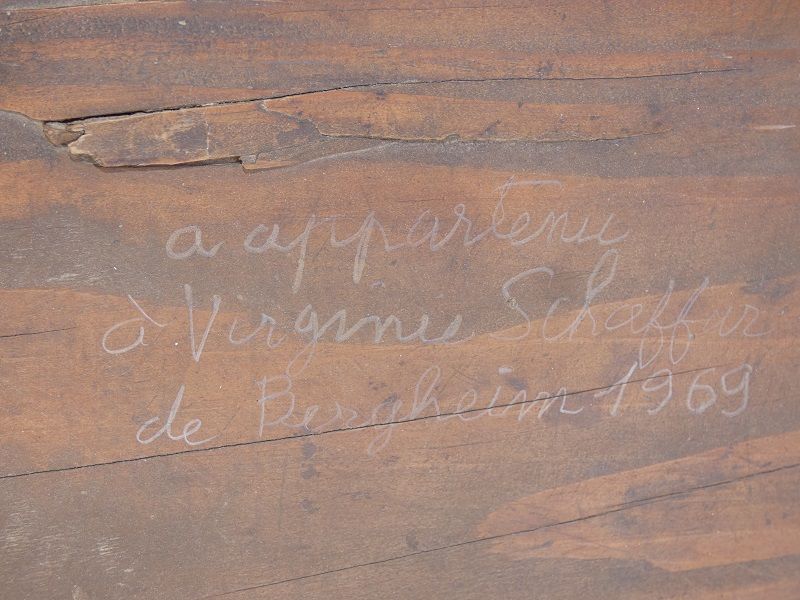 a appartenu
à Virginie Schaeffar
de Bergheim 1969